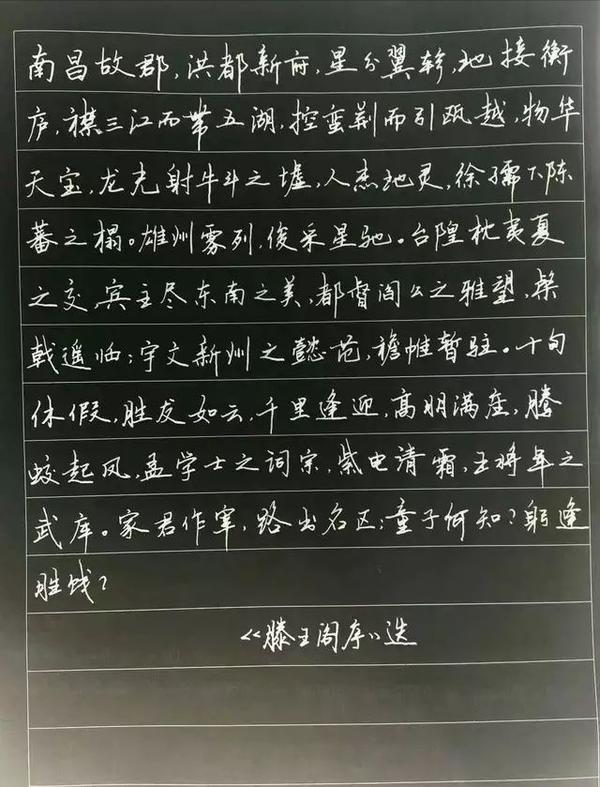 南昌故郡,洪都新府,星分翼轸,地接衡
庐,襟三江而带五湖,控蛮荆而引瓯越,物华
天宝,龙光射牛斗之墟,人杰地灵,徐孺下陈
蕃之榻。雄州雾列,俊采星驰。台隍枕夷夏
之交,宾主尽东南之美,都督阎公之雅望,棨
戟遥临;宇文新州之懿范,襜帷暂驻。十旬
休假,胜友如云,千里逢迎,高朋满座,腾
蛟起凤,孟学士之词宗,紫电清霜,王将军之
武库。家君作宰,路出名区;童子何知?躬逢
胜饯?
《滕王阁序》选